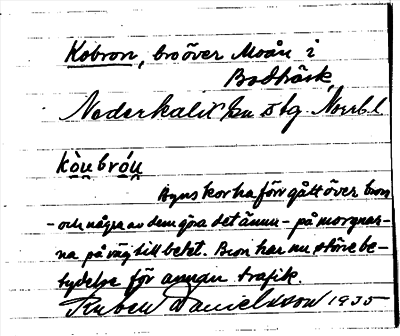 Kobron, bro över Moån i
Bodträsk
Nederkalix sn o tg. Norrb. l.
kò̤u̯bró̤u̯
Byns kor ha förr gått över bron
- och några av dem göra det ännu - på morgnar-
na på väg till betet. Bron har nu större be-
tydelse för annan trafik.
Ruben Danielsson 1935